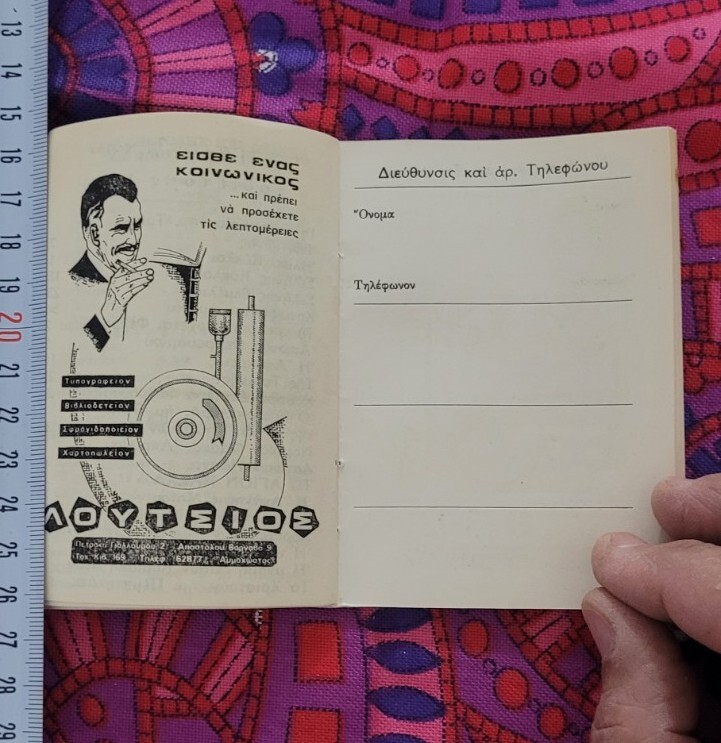 13
14
15
16
17
18
19
20
21
22
23
24
25
26
27
28
29
εισθε ενας
κοινωνικος
...καὶ πρέπει
νὰ προσέχετε
τὶς λεπτομέρειες
Τυπογραφείον
Βιβλιοδετείον
Σφραγιδοποιείον
Χαρτοπωλείον
ΛΟΥΤΣΙΟΣ
Πετράκη Γιαλλούρου 2 Αποστόλου Βαρνάβα 9
Ταχ. Κιβ. 169 Τηλεφ. 62877 Αμμόχωστος
Διεύθυνσις καὶ ἀρ. Τηλεφώνου
Ὄνομα
Τηλέφωνον